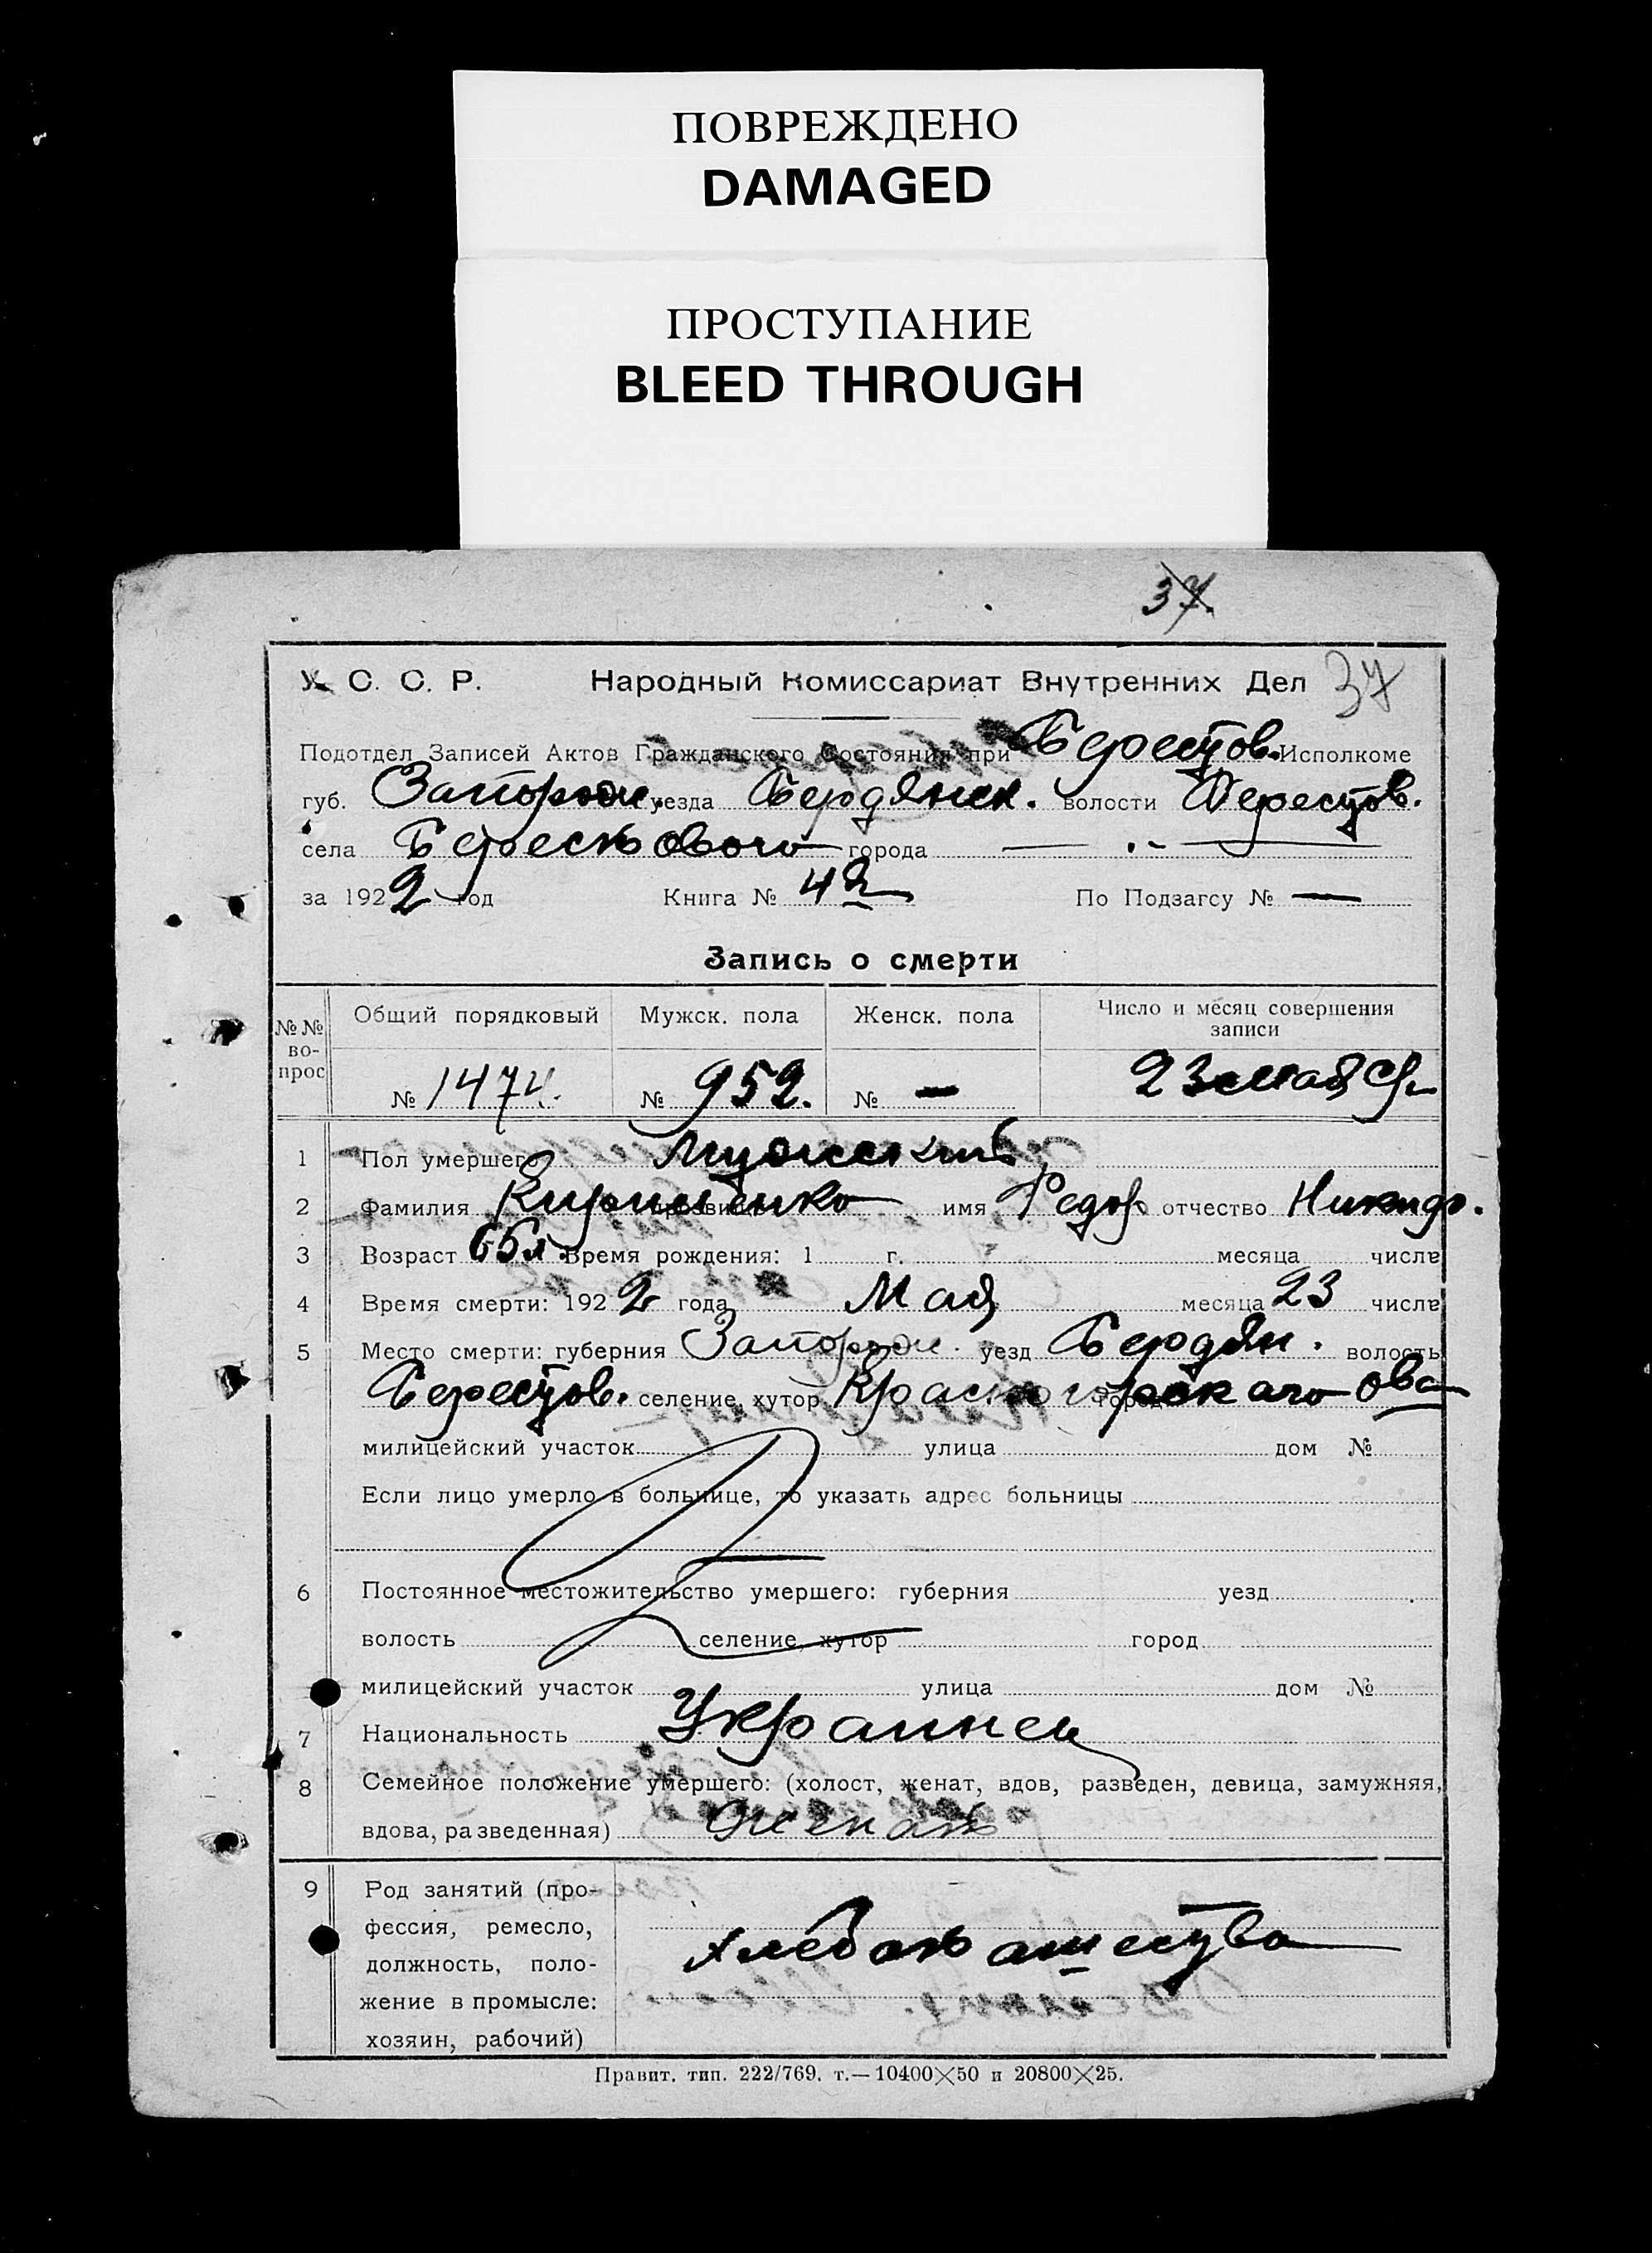 ПОВРЕЖДЕНО
DAMAGED
ПРОСТУПАНИЕ
BLEED THROUGH
37
У. С. С. Р. Народный Комиссариат Внутренних Дел 37
Подотдел Записей Актов Гражданского Состояния при Берестов. Исполкоме
губ. Запорож. уезда Бердянск. волости Берестов.
села Берестового города —
за 1922 год Книга № 42 По Подзагсу № —
Запись о смерти
№№ вопрос Общий порядковый Мужск. пола Женск. пола Число и месяц совершения
записи
№ 1474. № 952. № — 23 мая
1 Пол умершего Мужской
2 Фамилия прозвище имя Федор отчество Никифр.
3 Возраст 65 л. Время рождения: 1 г. месяца числа
4 Время смерти: 1922 года Мая месяца 23 числа
5 Место смерти: губерния Запорож. уезд Бердян. волость
Берестов. селение, хутор Красногорскаго город
милицейский участок улица дом №
Если лицо умерло в больнице, то указать адрес больницы
6 Постоянное местожительство умершего: губерния уезд
волость селение, хутор город
милицейский участок улица дом №
7 Национальность Украинец
8 Семейное положение умершего: (холост, женат, вдов, разведен, девица, замужняя,
вдова, разведенная) женат
9 Род занятий (про-
фессия, ремесло,
должность, поло-
жение в промысле:
хозяин, рабочий)
Правит. тип. 222/769. т.—10400×50 и 20800×25.